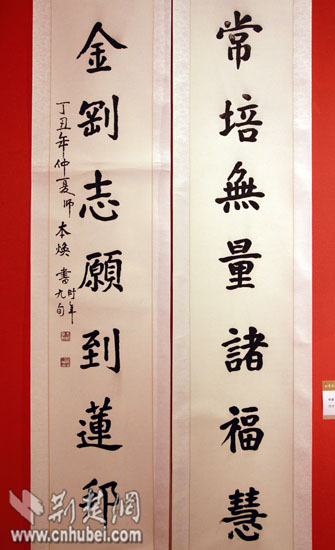 常培無量諸福慧
金剛志願到蓮邦
丁丑年仲夏师本焕書
时年九旬
荆楚網
www.cnhubei.com